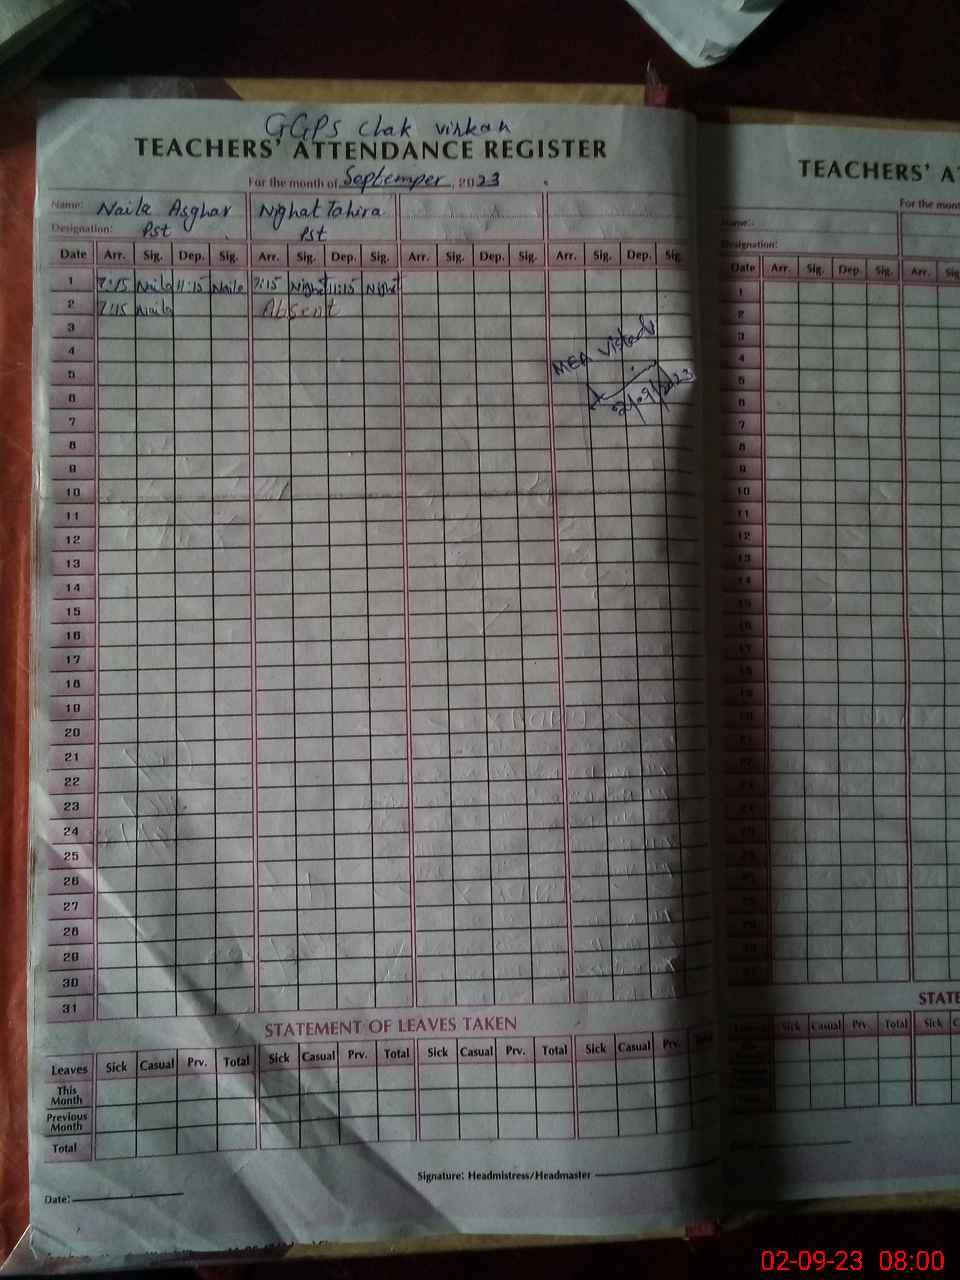 GGPS chak virkan
TEACHERS' ATTENDANCE REGISTER
For the month of Septemper, 2023
Name: Naila Asghar Nighat Tahira
Designation: Pst Pst
Date Arr. Sig. Dep. Sig. Arr. Sig. Dep. Sig. Arr. Sig. Dep. Sig. Arr. Sig. Dep. Sig.
1 7:15 Naila 11:15 Naila 7:15 Nighat 11:15 Nighat
2 7:15 Naila Absent
3
4
5
6
7
8
9
10
11
12
13
14
15
16
17
18
19
20
21
22
23
24
25
26
27
28
29
30
31
MEA Visted
02/09/2023
STATEMENT OF LEAVES TAKEN
Leaves Sick Casual Prv. Total Sick Casual Prv. Total Sick Casual Prv. Total Sick Casual Prv. Total
This Month
Previous Month
Total
Signature: Headmistress/Headmaster
Date:
TEACHERS' A
For the mont
Name:
Designation:
Date Arr. Sig. Dep. Sig. Arr.
1
2
3
4
5
6
7
8
9
10
11
12
13
14
15
16
17
18
19
STATE
Sick Casual Prv. Total Sick
02-09-23 08:00